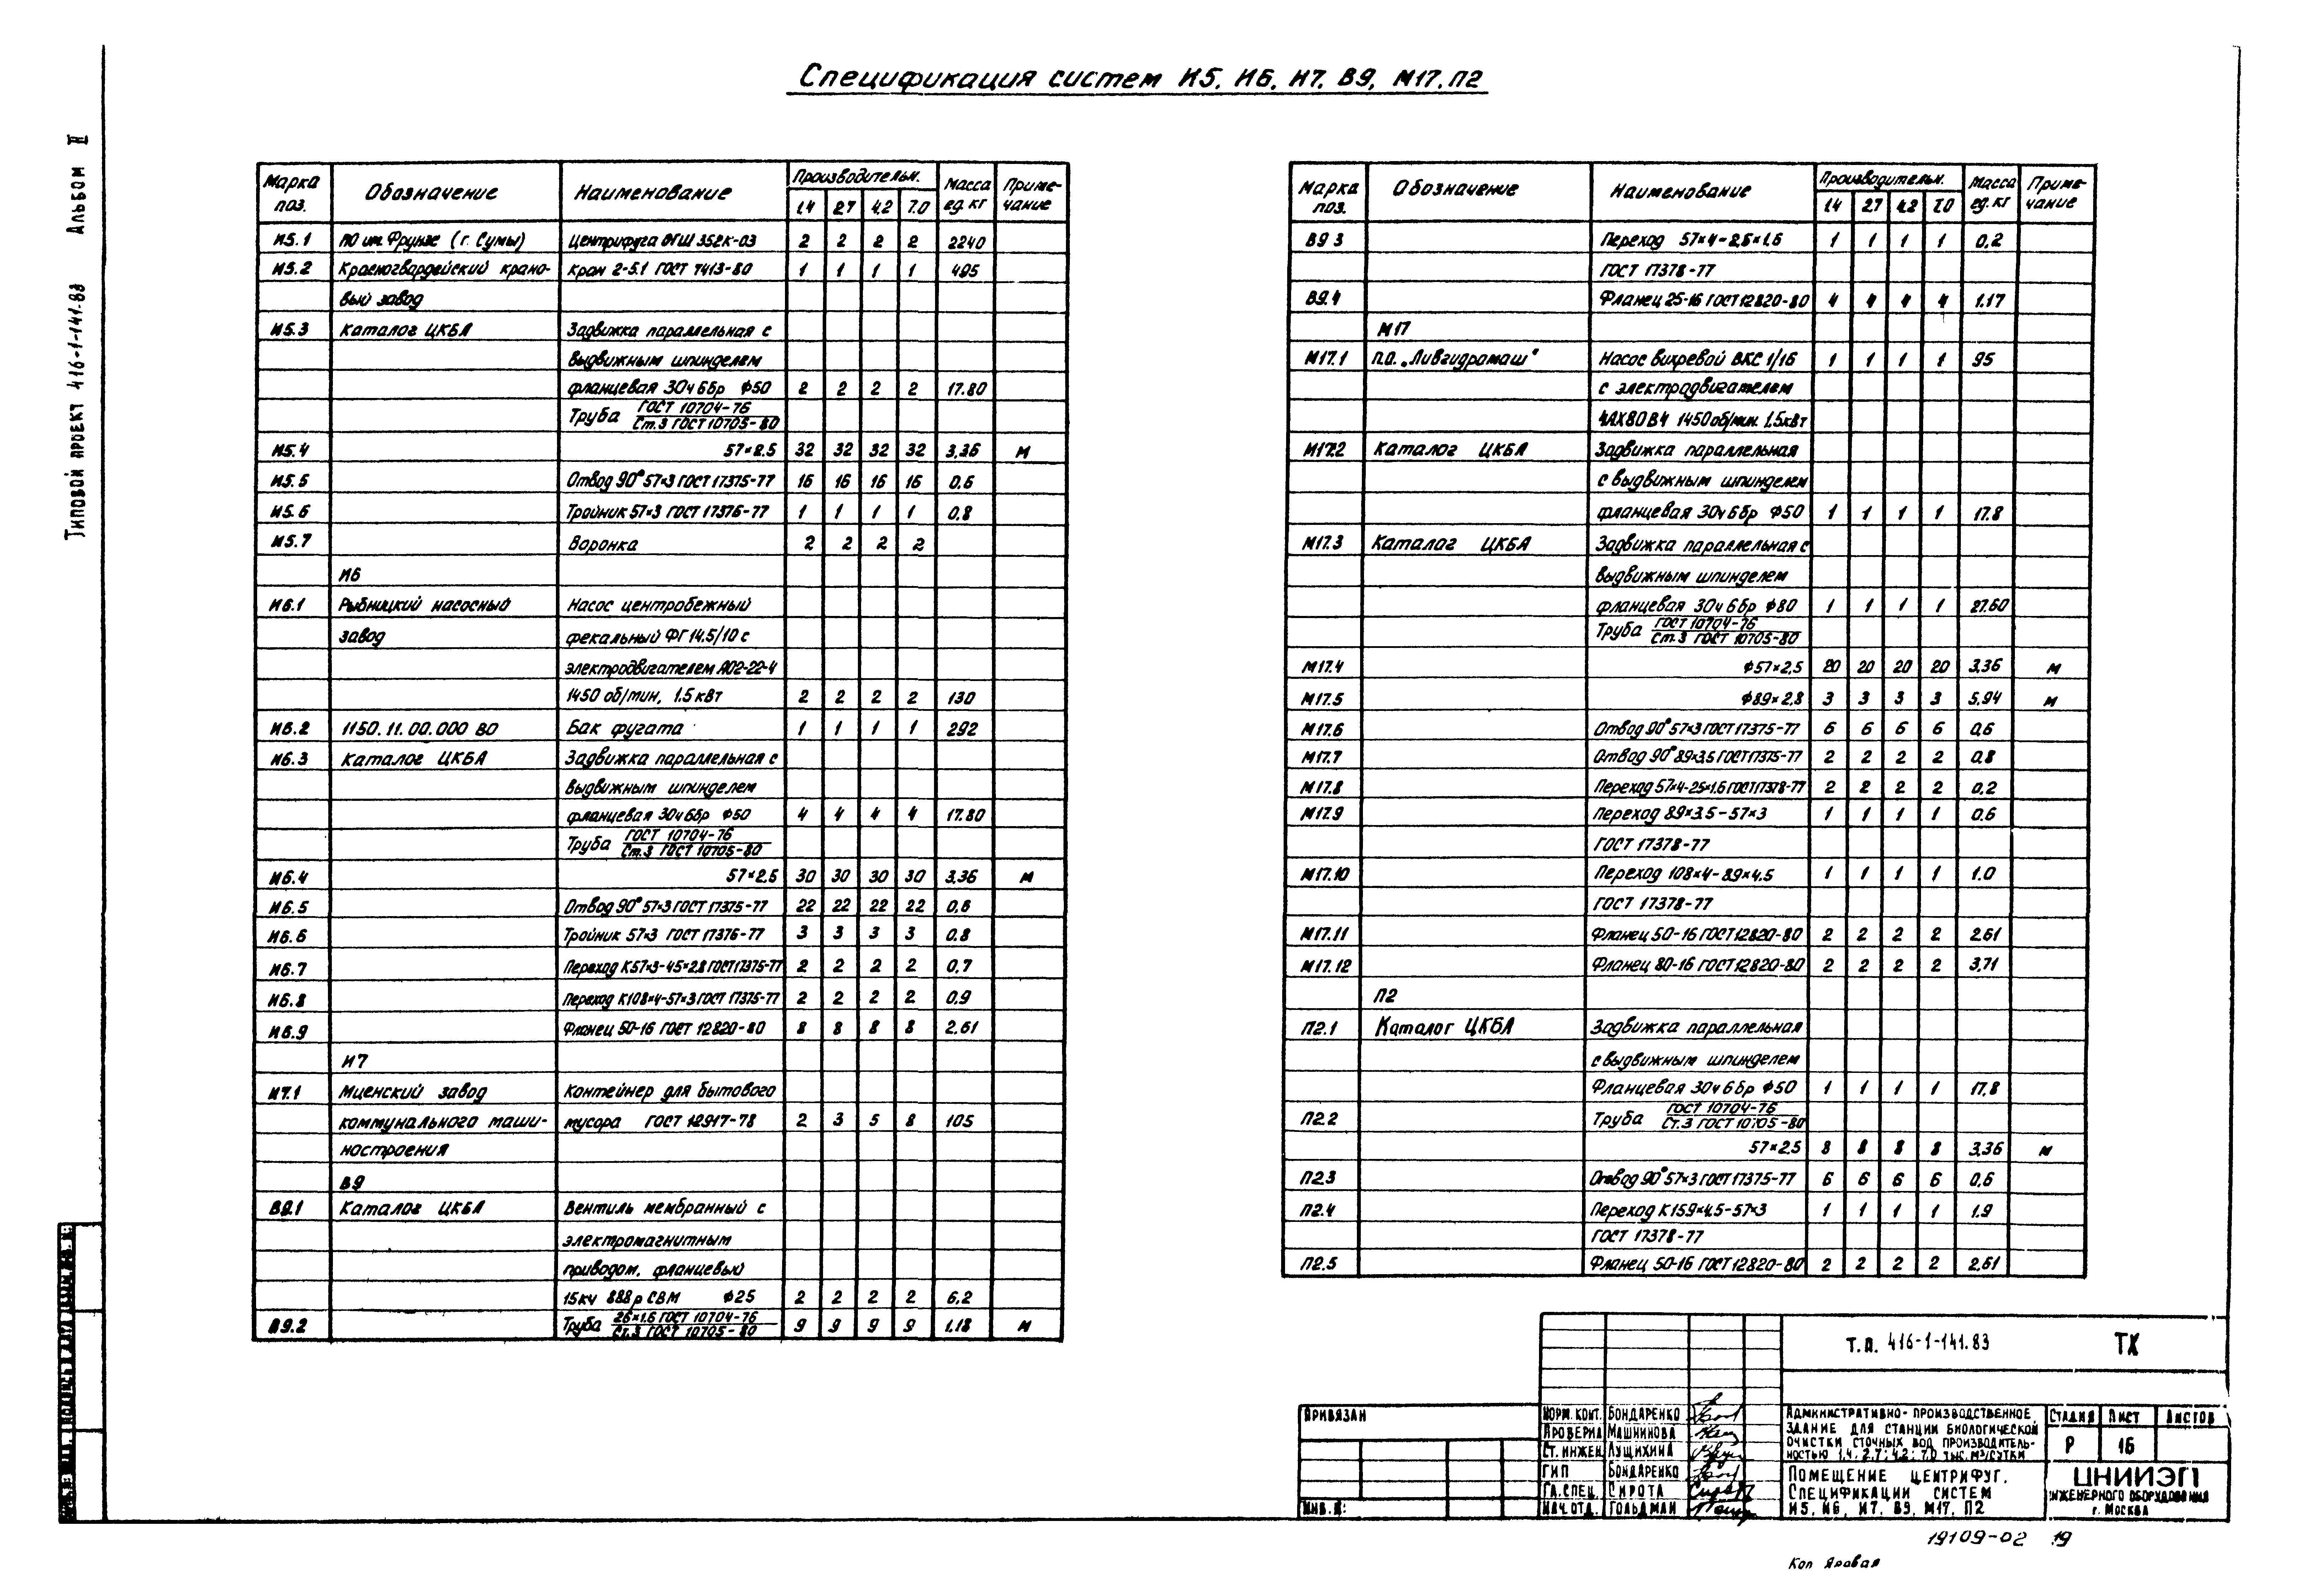 Спецификация систем И5, И6, И7, В9, М17, П2
Типовой проект 416-1-141.83 Альбом II
Марка поз. Обозначение Наименование Производительн. 1.4 2.7 4.2 7.0 Масса ед. кг Примечание
И5.1 ПО им. Фрунзе (г. Сумы) Центрифуга ОГШ 352К-03 2 2 2 2 2240
И5.2 Красногвардейский крано- Кран 2-5.1 ГОСТ 7413-80 1 1 1 1 495
вый завод
И5.3 Каталог ЦКБА Задвижка параллельная с
выдвижным шпинделем
фланцевая 30ч6бр ф50 2 2 2 2 17.80
Труба ГОСТ 10704-76
Ст.3 ГОСТ 10705-80
И5.4 57×2.5 32 32 32 32 3,36 м
И5.5 Отвод 90° 57×3 ГОСТ 17375-77 16 16 16 16 0.6
И5.6 Тройник 57×3 ГОСТ 17376-77 1 1 1 1 0.8
И5.7 Воронка 2 2 2 2
И6
И6.1 Рыбницкий насосный Насос центробежный
завод фекальный ФГ 14.5/10 с
электродвигателем А02-22-4
1450 об/мин, 1.5 кВт 2 2 2 2 130
И6.2 1150.11.00.000 ВО Бак фугата 1 1 1 1 292
И6.3 Каталог ЦКБА Задвижка параллельная с
выдвижным шпинделем
фланцевая 30ч6бр ф50 4 4 4 4 17.80
Труба ГОСТ 10704-76
Ст.3 ГОСТ 10705-80
И6.4 57×2.5 30 30 30 30 3,36 м
И6.5 Отвод 90° 57×3 ГОСТ 17375-77 22 22 22 22 0,6
И6.6 Тройник 57×3 ГОСТ 17376-77 3 3 3 3 0.8
И6.7 Переход К57×3-45×2.8 ГОСТ 17375-77 2 2 2 2 0,7
И6.8 Переход К108×4-57×3 ГОСТ 17375-77 2 2 2 2 0,9
И6.9 Фланец 50-16 ГОСТ 12820-80 8 8 8 8 2.61
И7
И7.1 Мценский завод Контейнер для бытового
коммунального маши- мусора ГОСТ 12917-78 2 3 5 8 105
ностроения
В9
В9.1 Каталог ЦКБА Вентиль мембранный с
электромагнитным
приводом, фланцевый
15кч 888р СВМ ф25 2 2 2 2 6,2
В9.2 Труба 26×1.6 ГОСТ 10704-76
Ст.3 ГОСТ 10705-80 9 9 9 9 1,18 м
Марка поз. Обозначение Наименование Производительн. 1.4 2.7 4.2 7.0 Масса ед. кг Примечание
В9 3 Переход 57×4-25×1.6 1 1 1 1 0,2
ГОСТ 17378-77
В9.4 Фланец 25-16 ГОСТ 12820-80 4 4 4 4 1.17
М17
М17.1 П.О. „Ливгидромаш" Насос вихревой ВКС 1/16 1 1 1 1 95
с электродвигателем
4АХ80В4 1450 об/мин. 1,5кВт
М17.2 Каталог ЦКБА Задвижка параллельная
с выдвижным шпинделем
фланцевая 30ч6бр ф50 1 1 1 1 17.8
М17.3 Каталог ЦКБА Задвижка параллельная с
выдвижным шпинделем
фланцевая 30ч6бр ф80 1 1 1 1 27.60
Труба ГОСТ 10704-76
Ст.3 ГОСТ 10705-80
М17.4 ф57×2,5 20 20 20 20 3,36 м
М17.5 ф89×2,8 3 3 3 3 5,94 м
М17.6 Отвод 90° 57×3 ГОСТ 17375-77 6 6 6 6 0,6
М17.7 Отвод 90° 89×3.5 ГОСТ 17375-77 2 2 2 2 0,8
М17.8 Переход 57×4-25×1.6 ГОСТ 17378-77 2 2 2 2 0.2
М17.9 Переход 89×3.5-57×3 1 1 1 1 0.6
ГОСТ 17378-77
М17.10 Переход 108×4-89×4.5 1 1 1 1 1.0
ГОСТ 17378-77
М17.11 Фланец 50-16 ГОСТ 12820-80 2 2 2 2 2.61
М17.12 Фланец 80-16 ГОСТ 12820-80 2 2 2 2 3,71
П2
П2.1 Каталог ЦКБА Задвижка параллельная
с выдвижным шпинделем
Фланцевая 30ч6бр ф50 1 1 1 1 17,8
П2.2 Труба ГОСТ 10704-76
Ст.3 ГОСТ 10705-80
57×2.5 8 8 8 8 3,36 м
П2.3 Отвод 90° 57×3 ГОСТ 17375-77 6 6 6 6 0,6
П2.4 Переход К159×4.5-57×3 1 1 1 1 1.9
ГОСТ 17378-77
П2.5 Фланец 50-16 ГОСТ 12820-80 2 2 2 2 2,61
Т.П. 416-1-141.83 ТХ
Привязан
Инв.№:
Норм. конт. Бондаренко
Проверил Машинова
Ст. инжен. Лущихина
ГИП Бондаренко
Гл. спец. Сирота
Нач. отд. Гольдман
Административно-производственное
здание для станции биологической
очистки сточных вод производитель-
ностью 1,4; 2,7; 4,2; 7,0 тыс. м³/сутки
Стадия Лист Листов
Р 16
Помещение центрифуг.
Спецификации систем
И5, И6, И7, В9, М17, П2
ЦНИИЭП
инженерного оборудования
г. Москва
19109-02 19
Коп Яровая